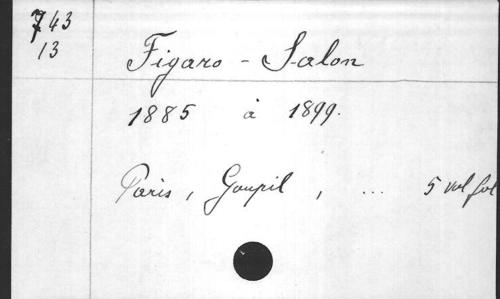 743
13
Figaro - Salon
1885 à 1899.
Paris, Goupil, ... 5 vol fol